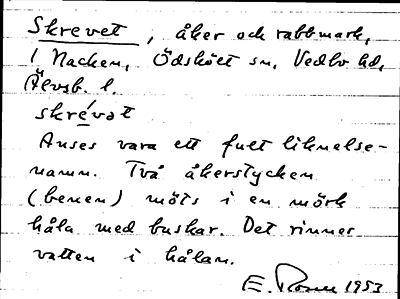 Skrevet, åker och rabbmark,
i Nacken, Ödskölt sn, Vedbo hd,
Älvsb. l.
skrévət
Anses vara ett fult liknelse-
namn. Två åkerstycken
(benen) möts i en mörk
håla med buskar. Det rinner
vatten i hålan.
E. 1953